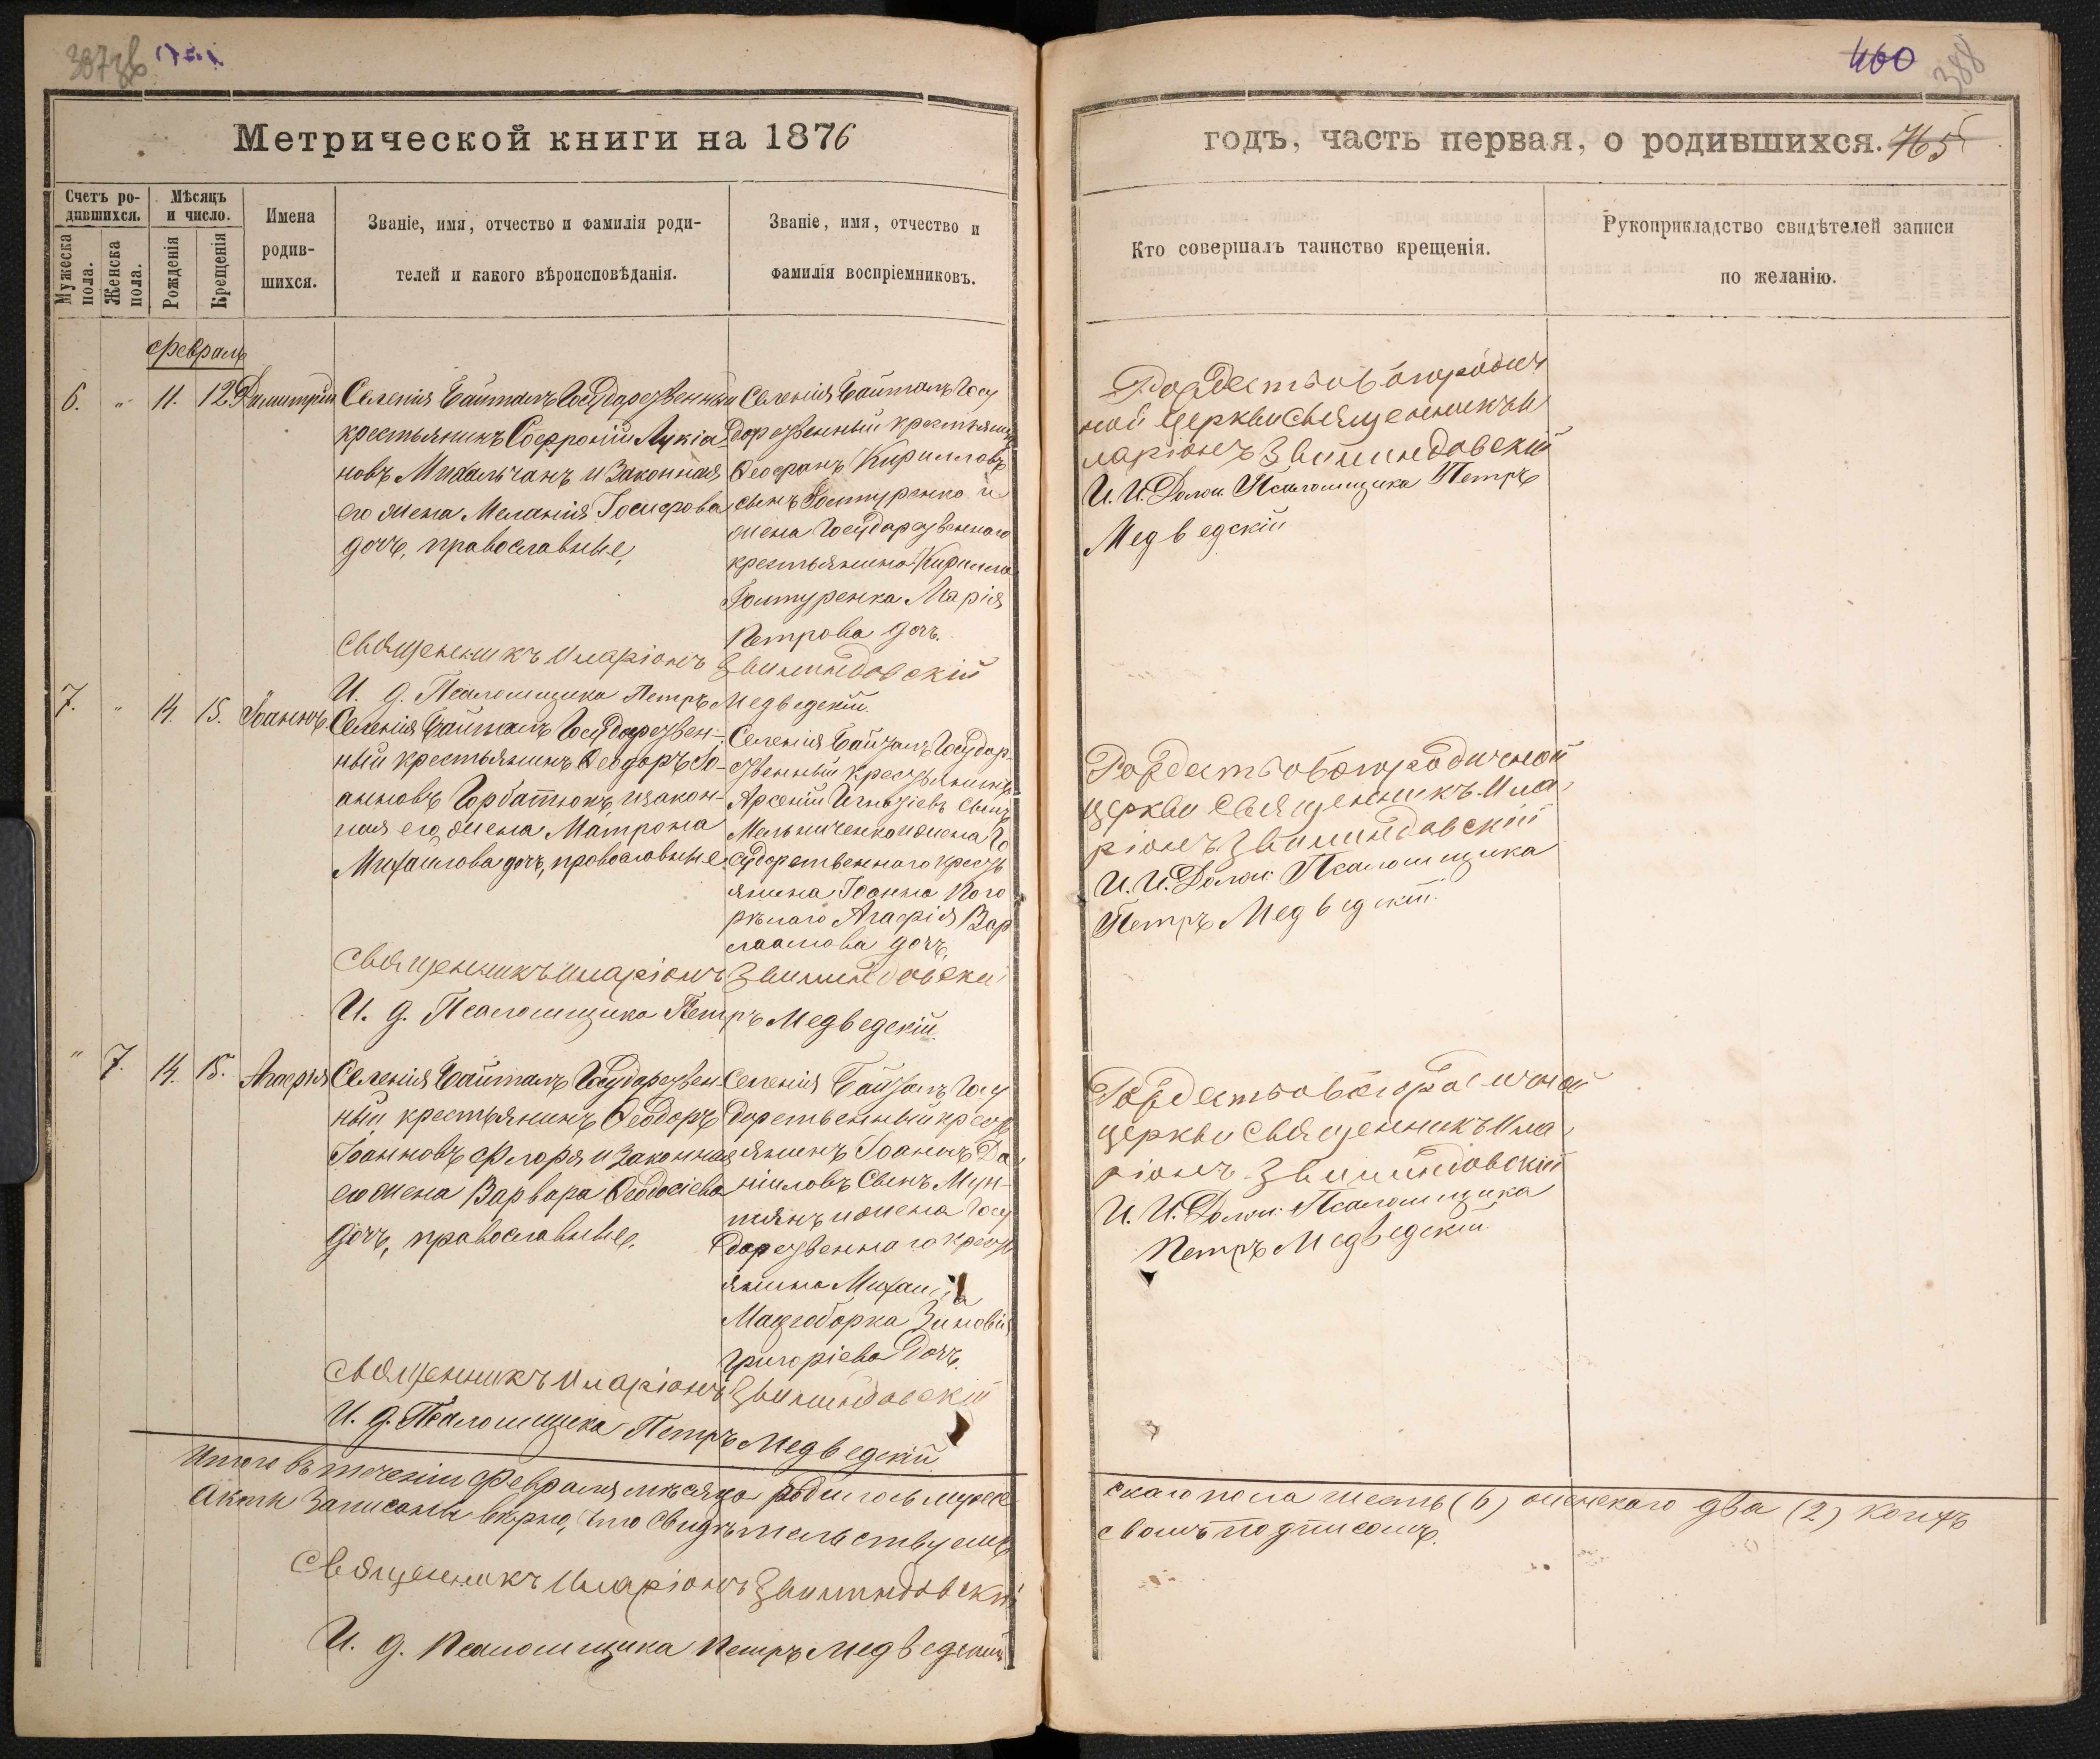 387 зв
460
388
Метрической книги на 1876
годъ, часть первая, о родившихся.
765
Счетъ ро-
дившихся.
Мужеска
пола.
Женска
пола.
Мѣсяцъ
и число.
Рожденія
Крещенія
Имена
родив-
шихся.
Званіе, имя, отчество и фамилія роди-
телей и какого вѣроисповѣданія.
Званіе, имя, отчество и
фамилія воспріемниковъ.
Кто совершалъ таинство крещенія.
Рукоприкладство свидѣтелей записи
по желанію.
Февраль
6. " 11. 12. Димитрій
Селенія Байталъ Государственный
крестьянинъ Софроній Лукіа
новъ Михальчанъ и Законная
его жена Меланія Іосифова
дочь, православные,
Селенія Байталъ Госу
дарственный крестьянинъ
Ѳеофанъ Кирилловъ
сынъ Гомтуренко и
жена Государственнаго
крестьянина Кирилла
Гомтуренка Марія
Петрова дочь.
Священникъ Иларіонъ
И. д. Псаломщика Петръ Медведскій
Рождество Богородич
ной церкви Священникъ И
ларіонъ
И. И. Долж. Псаломщика Петръ
Медведскій
7. " 14. 15. Іоаннъ
Селенія Байталъ Государствен-
ный крестьянинъ Ѳеодоръ Іо-
анновъ Горбатюкъ и закон-
ная его жена Матрона
Михаилова дочь, православные
Селенія Байталъ Государ-
ственный крестьянинъ
Арсеній Игнатіевъ сынъ
Мельниченко и жена Го
сударственнаго кресть
янина Іоанна Пого
рѣлаго Агафія Вар
лаамова дочь,
Священникъ Иларіонъ
И. д. Псаломщика Петръ Медведскій
Рождество Богородичной
церкви Священникъ Ила
ріонъ
И. И. Долж. Псаломщика
Петръ Медведскій.
" 7. 14. 15. Агафія
Селенія Байталъ Государствен
ный крестьянинъ Ѳеодоръ
Іоанновъ Флоря и Законная
его жена Варвара Ѳеодосіева
дочь, православные.
Селенія Байталъ Госу
дарственный кресть
янинъ Іоаннъ Да
ніиловъ Сынъ Мун-
тянъ и жена Госу
дарственнаго кресть
янина Михаила
Зиновія
Григоріева Дочь.
Священникъ Иларіонъ
И. д. Псаломщика Петръ Медведскій
Рождество Богородичной
церкви Священникъ Ила
ріонъ
И. И. Долж. Псаломщика
Петръ Медведскій.
Итого въ теченіи Февраля мѣсяца родилось мужс
скаго пола шесть (6) женскаго два (2)
Акты Записаны вѣрно, что Свидѣтельствуемъ
своимъ подписомъ.
Священникъ Иларіонъ
И. д. Псаломщика Петръ Медведскій